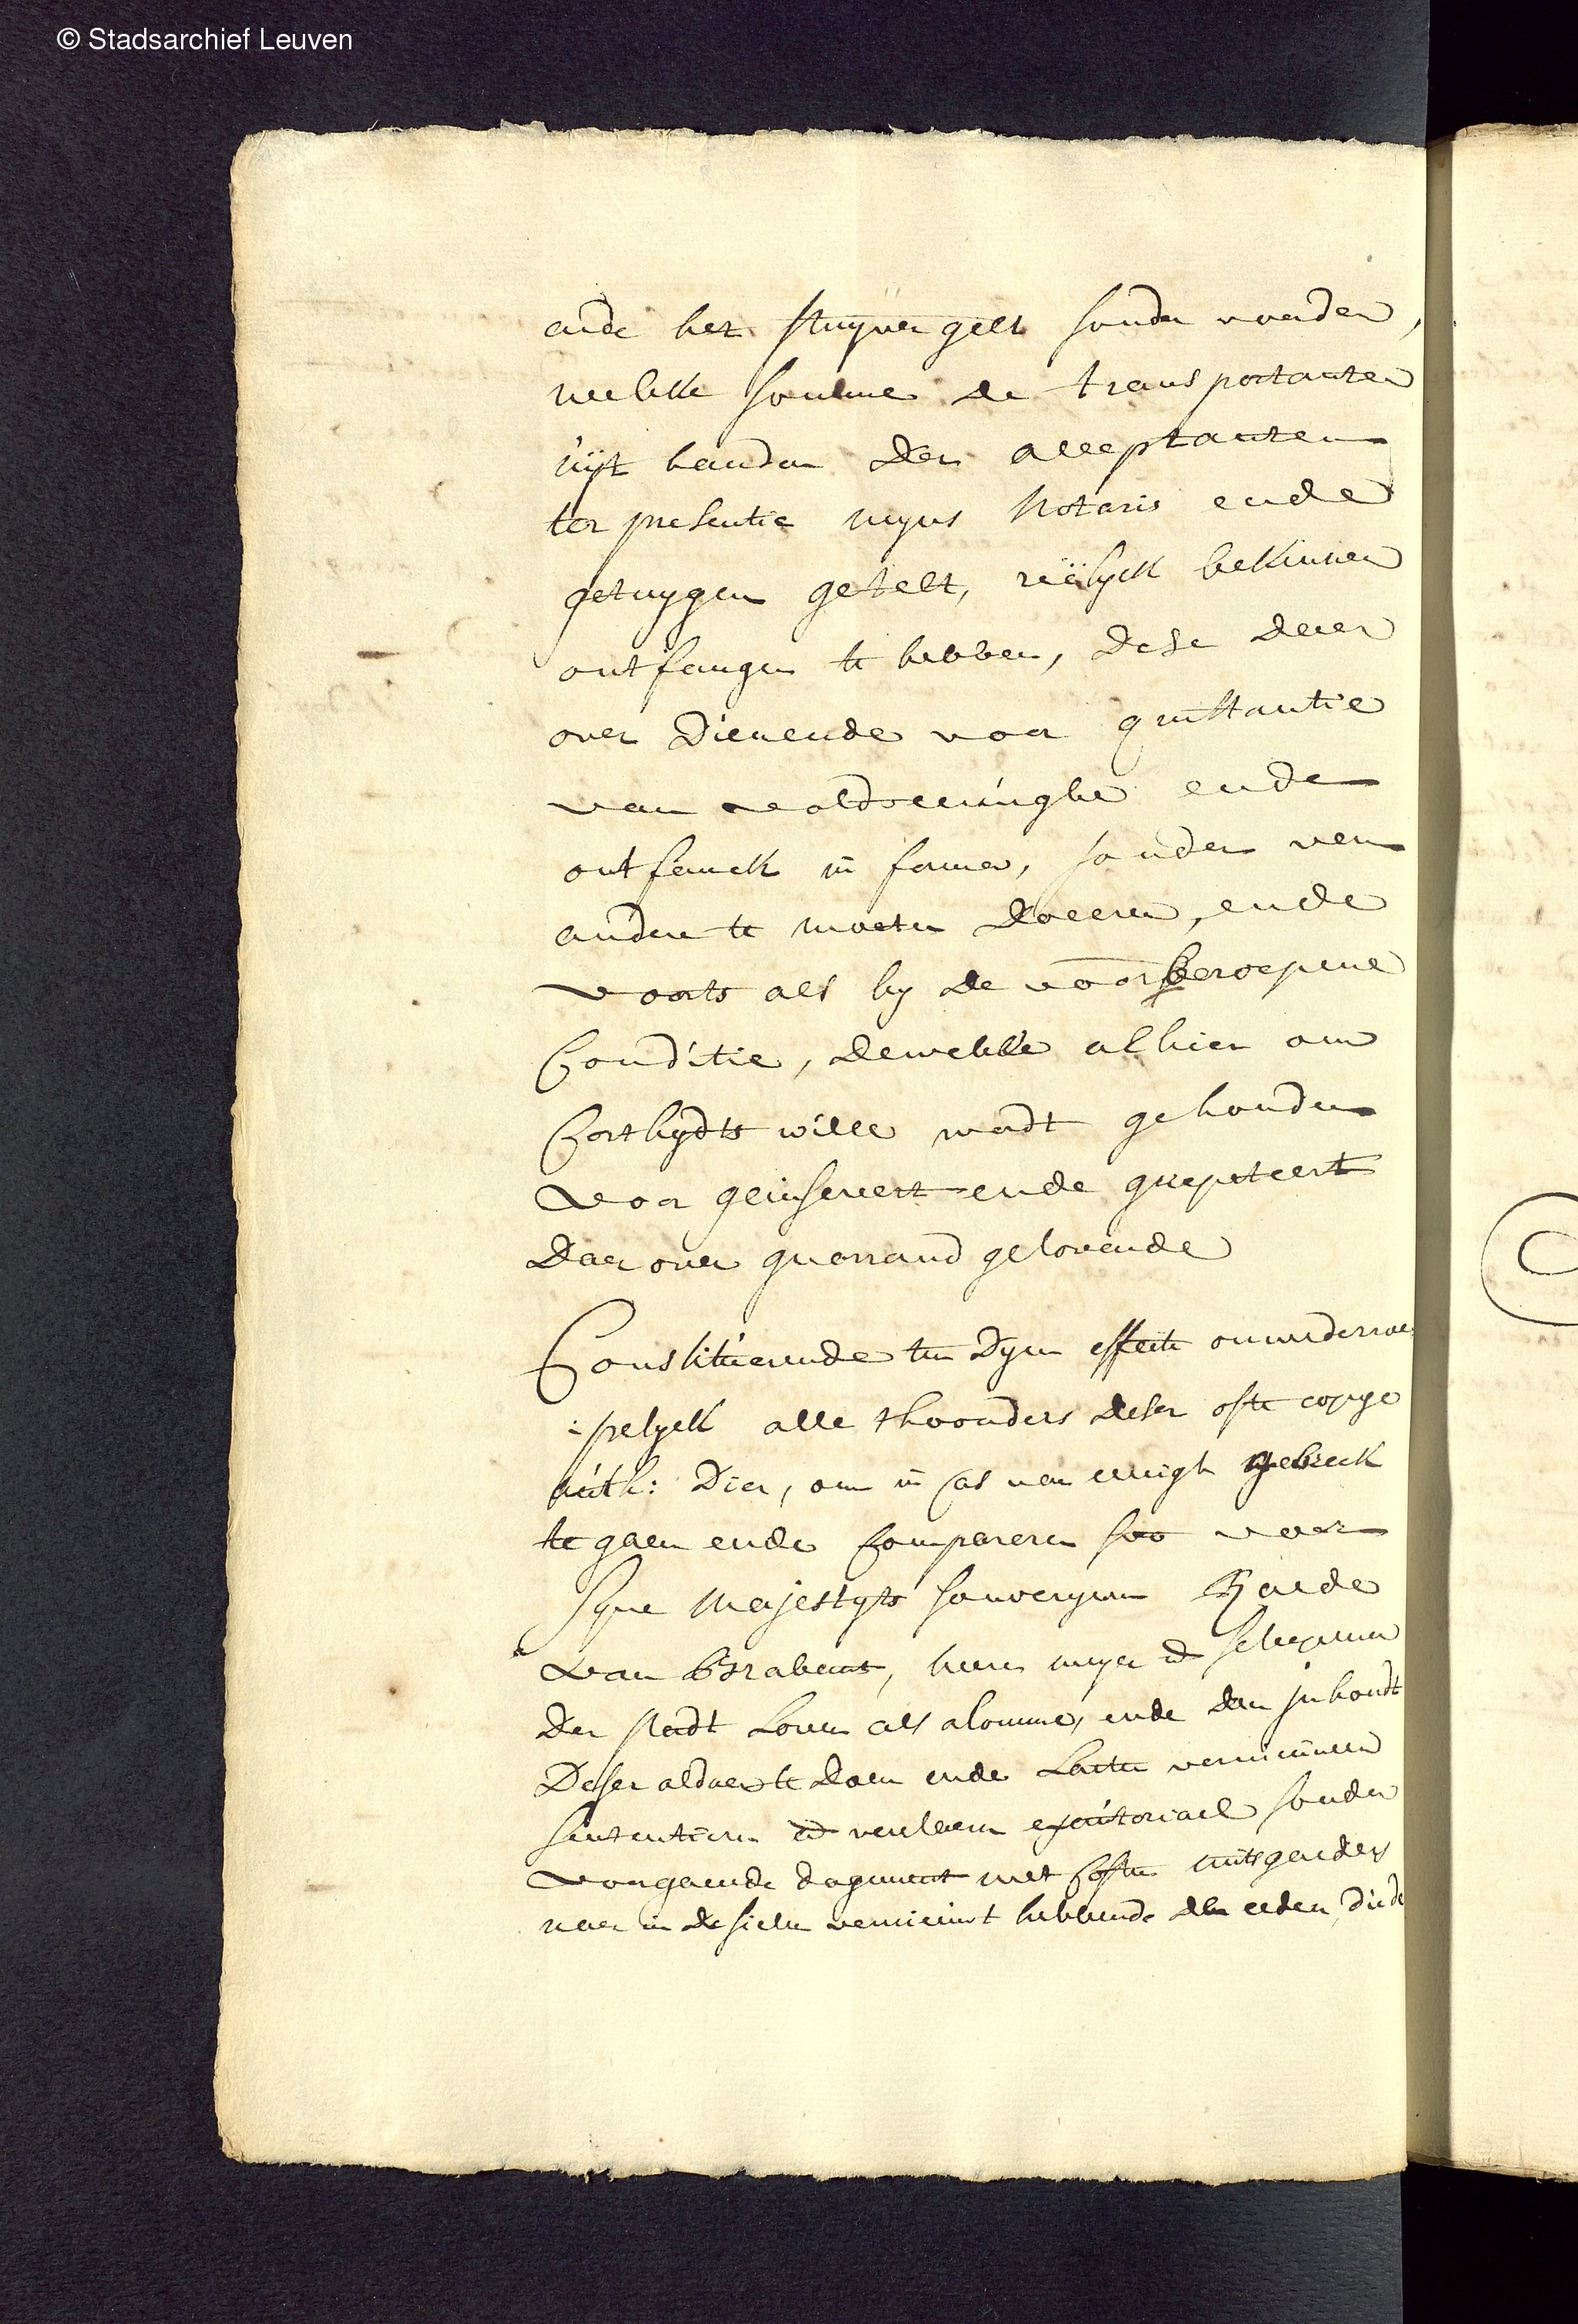 © Stadsarchief Leuven
ende het stuyver gelt sonder worden,
welcke somme de transportanten
uÿt handen der acceptanten
ter presentie myns Notaris ende
getuygen getelt, reëlyck bekinnen
ontfangen te hebben, dese daer
over dienende voor quittantie
van voldoeninghe ende
ontfanck in forma, sonder van
andere te moeten doceren, ende
voorts als by de voorberoepene
Conditie, dewelcke alhier om
Corthydts wille wordt gehouden
voor geinsereert ende gerepeteert
daer over guerrand gelovende
Constituerende ten dyen effecte onwederroe
:pelyck alle thoonders deser ofte copye
auth: dier, om in cas van eenigh gebreck
te gaen ende compareren soo voor
syne Majestyts souvereynen Raede
van Brabant, heere meyer ende schepenen
der stadt Loven als alomme, ende den inhoudt
deser aldaer te doen ende laeten vernieuwen
sententieren ende verleenen executoriael sonder
voorgaende dagement met costen mitsgaeders
naer in de sielen vernieuwt hebbende den eedt